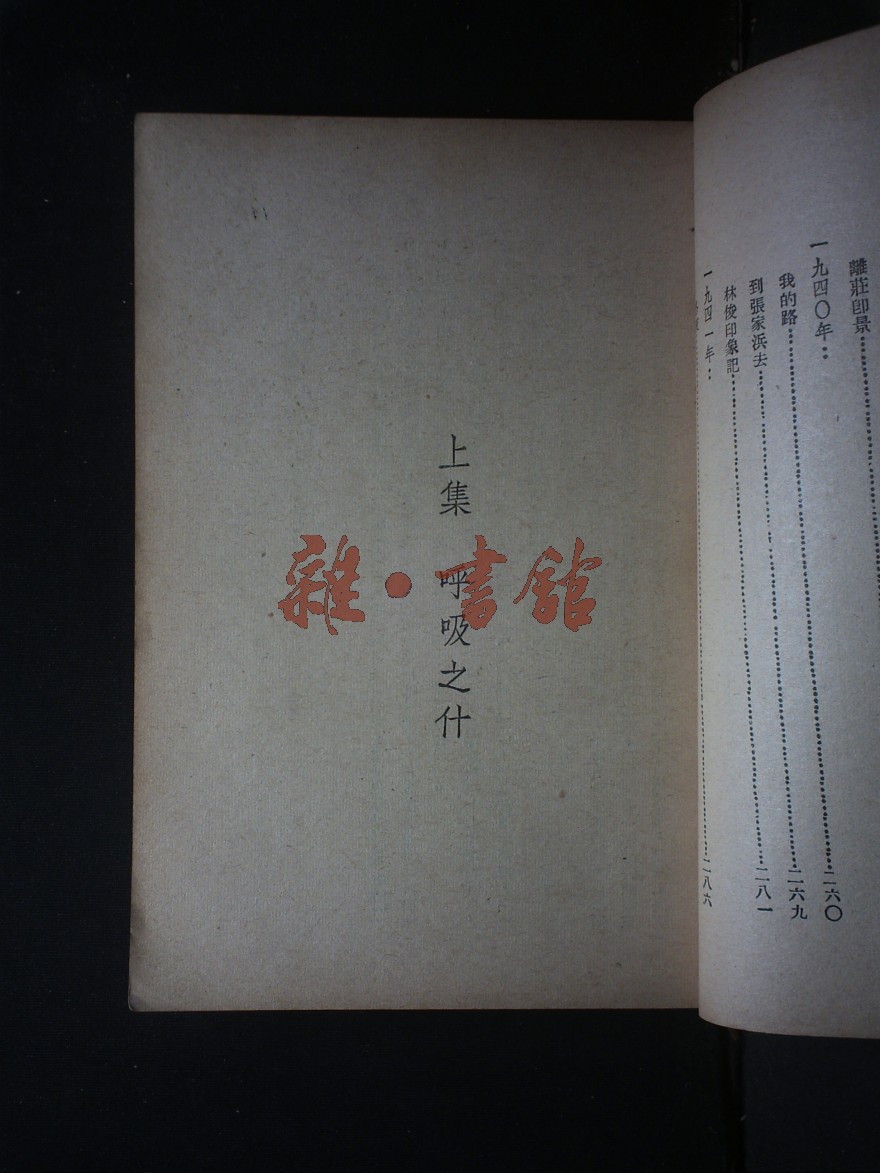 離莊卽景
一九四〇年：
我的路 二六〇
到張家浜去 二六九
林俊印象記 二八一
一九四一年：
二八六
上集 呼吸之什
雜・書館